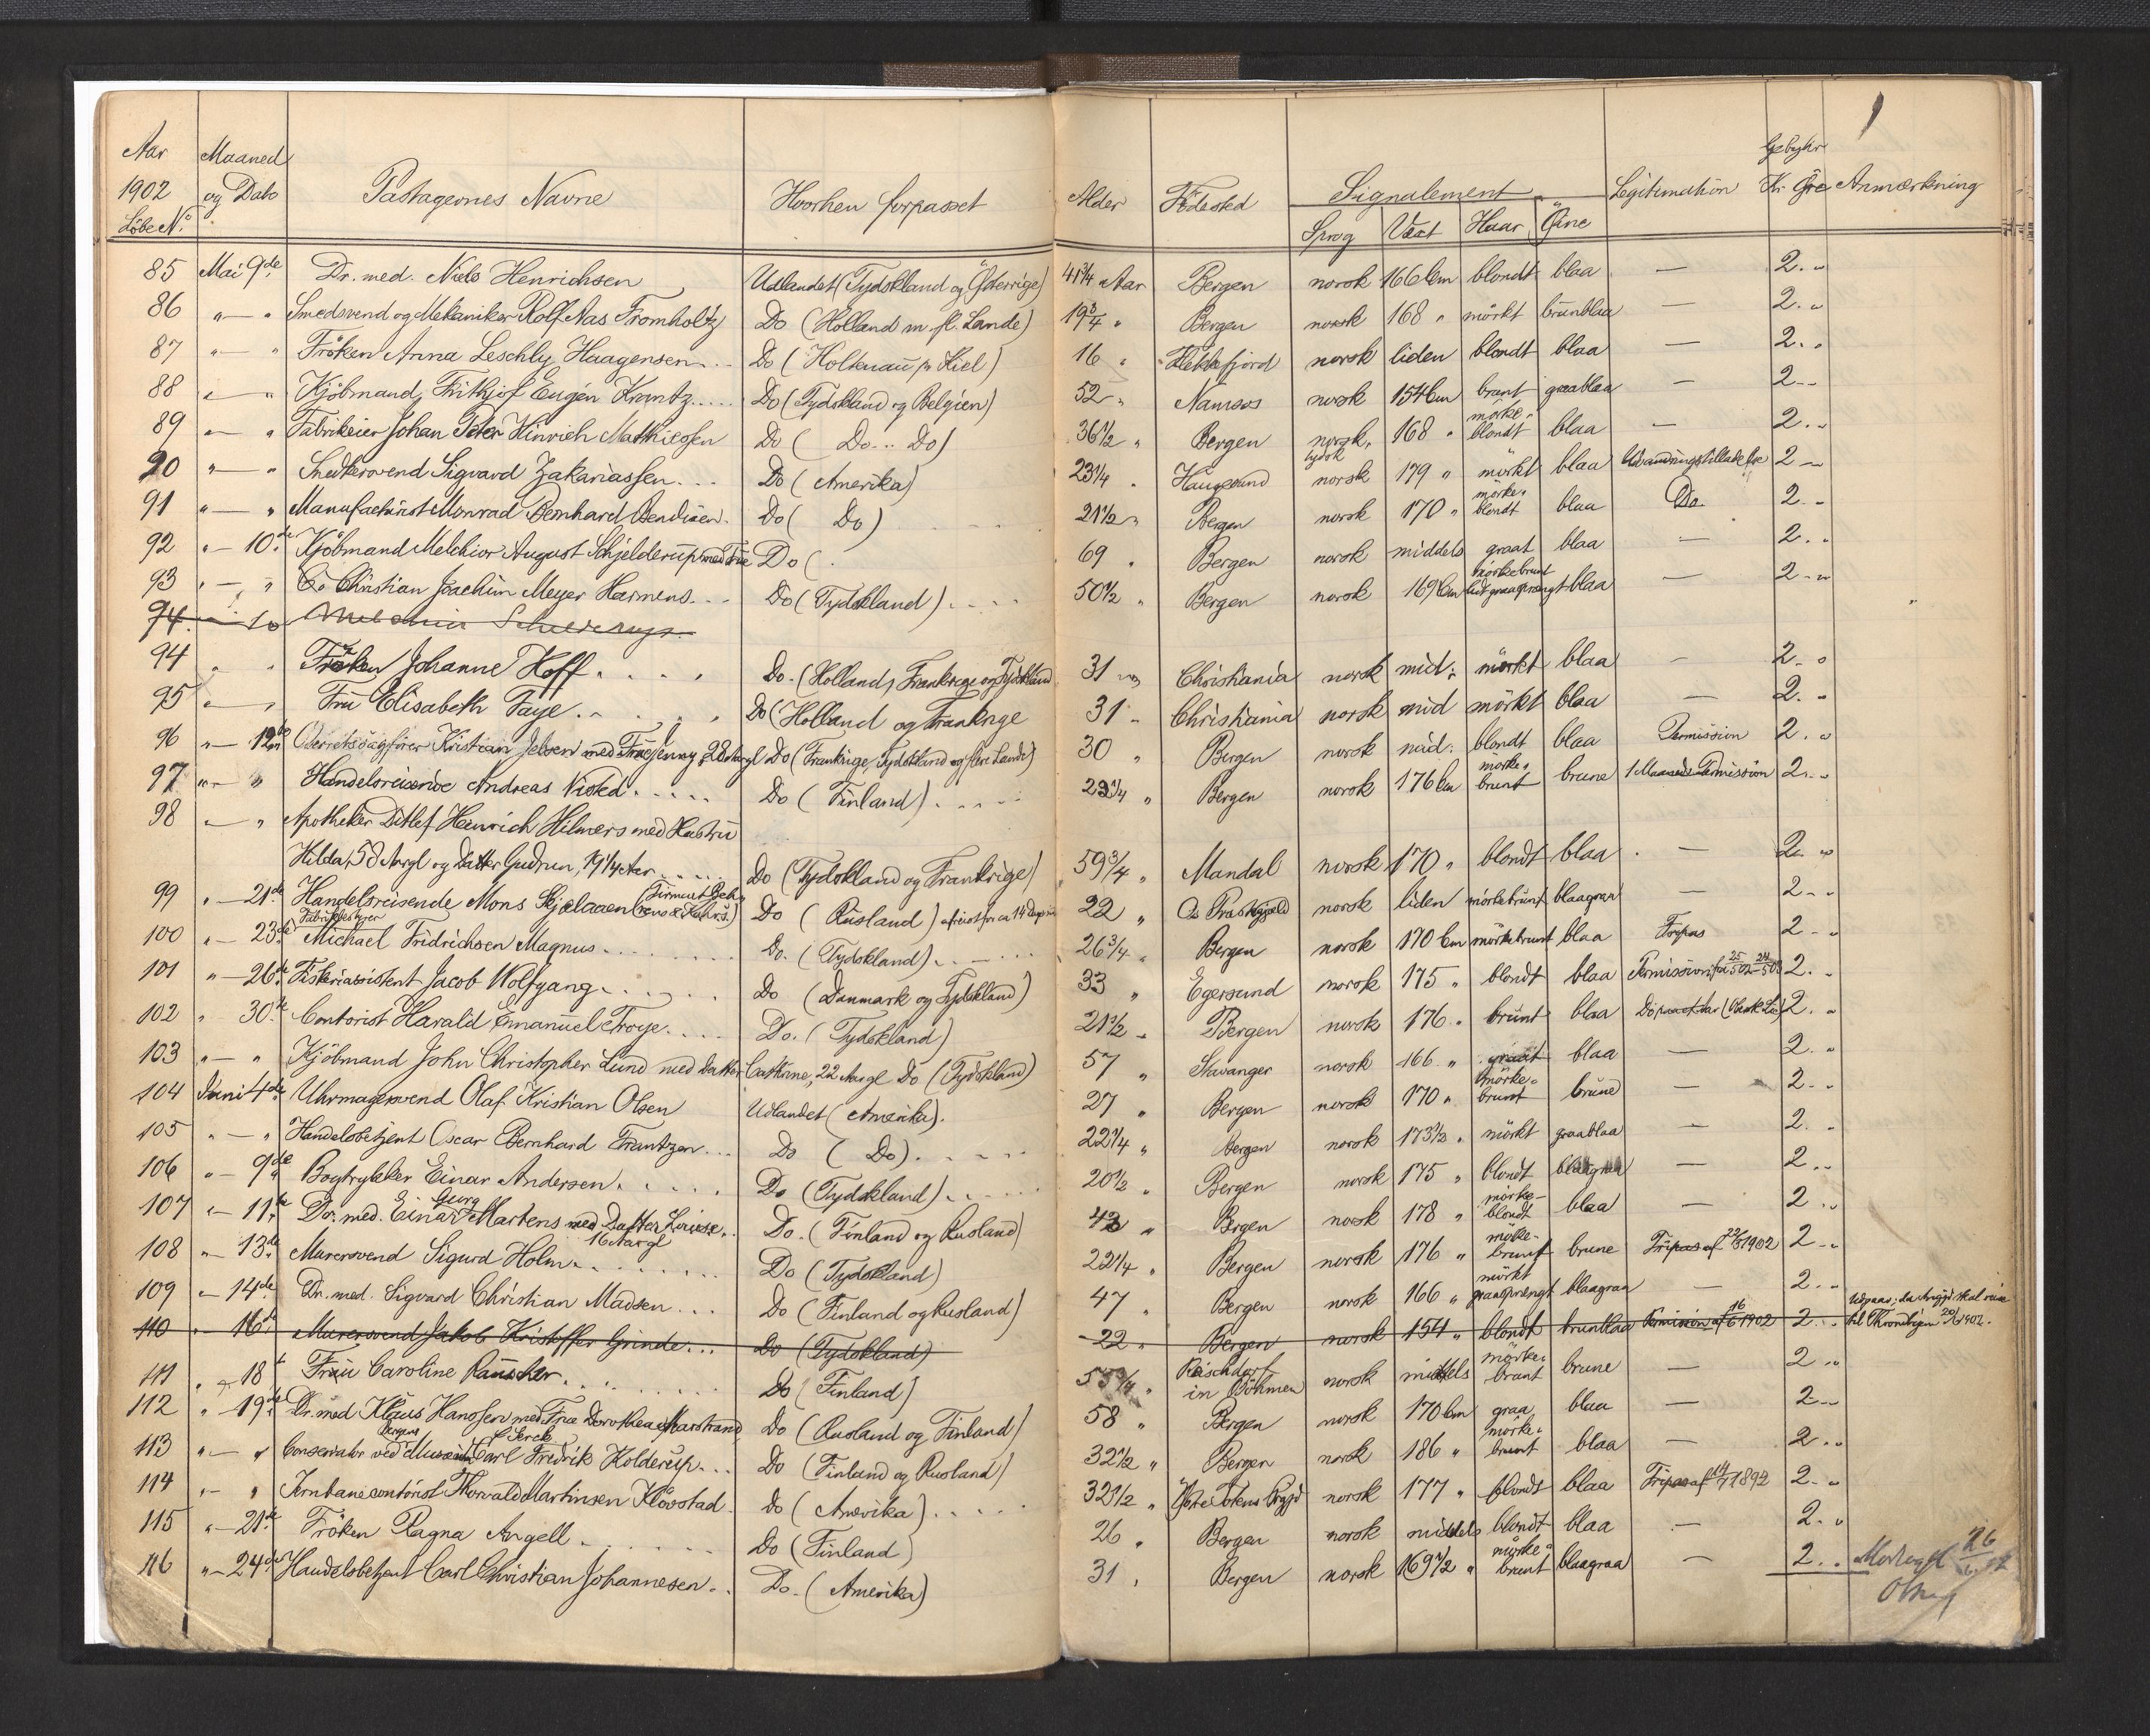 Aar Maaned Gebyhr
1902 og Dato Pastagernes Navne Hvorhen forpasset Alder Födested Signalement Legitimation Kr. Øre Anmærkning
Löbe No. Sprog Væxt Haar Öine
85 Mai 9de Dr. med. Niels Henrichsen Udlandet (Tydskland og Österrige) 41 3/4 Aar Bergen norsk 166 Cm blondt blaa — 2. "
86 " — " Smedsvend og Mekaniker Rolf Nas Fromholtz Do (Holland m. fl. Lande) 19 3/4 " Bergen norsk 168 " mörkt brunblaa — 2. "
87 " — " Fröken Anna Leschly Haagensen ... Do (Holtenau pr Kiel) 16 " norsk liden blondt blaa — 2. "
88 " — " Kjöbmand Frithjof Eugén Krantz ..... Do (Tydskland og Belgien) 52 " Namsos norsk 154 Cm brunt graablaa — 2 "
89 " — " Fabrikeier Johan Peter Hinrich Mathiesen Do ( Do .. Do) 36 1/2 " Bergen norsk, tydsk 168 " mörke-blondt blaa — 2. "
90 " — " Snedkersvend Sigvard Zakariassen ... Do (Amerika) 23 1/4 " Haugesund norsk 179 " mörkt blaa Udvandringstilladelse 2 "
91 " — " Manufacturist Monrad Bernhard Bendixen. Do ( Do) 21 1/2 " Bergen norsk 170 " mörke-blondt blaa Do. 2. "
92 " — 10de Kjöbmand Melchior August Schjelderup med Frue Do ( 69 " Bergen norsk middels graat blaa — 2. "
93 " — " Do Christian Joachim Meyer Harmens ... Do (Tydskland) .... 50 1/2 " Bergen norsk 169 Cm mörkebrunt lidt graasprengt blaa — 2 "
94. — 10
94 " " Fröken Johanne Hoff .... Do. (Holland, Frankrige og Tydskland 31 " Christiania norsk mid: mörkt blaa — 2. "
95 " — " Fru Elisabeth Faye .... Do (Holland og Frankrige 31 " Christiania norsk mid mörkt blaa — 2. "
96 " — 12te Overretssagförer Kristian Jebsen med Frue Jenny, 28 Aargl Do (Frankrige, Tydskland og flere Lande) 30 " Bergen norsk mid: blondt blaa Permission 2. "
97 " — " Handelsreisende Andreas Nisted ..... Do (Finland) ..... 23 1/4 " Bergen norsk 176 Cm mörke-brunt brune 1 Maaneds Permission 2. "
98 " — " Apotheker Ditlef Heinrich Hilmers med Hustru
Hilda, 58 Aargl og Datter Gudrun, 19 1/4 Aar ..... Do (Tydskland og Frankrige) 59 3/4 " Mandal norsk 170 " blondt blaa — 2. "
99 " — 21de Handelsreisende Mons Skjelaaen Do (Rusland) 22 " Os Præstegjæld norsk liden mörkebrunt blaagraa — 2 "
100 " — 23de Fabrikbestyrer Michael Fridrichsen Magnus ...... Do. (Tydskland) ..... 26 3/4 " Bergen norsk 170 Cm mörkebrunt blaa Fripas 2 "
101 " — 26de Fiskeriassistent Jacob Wolfgang ..... Do (Danmark og Tydskland) 33 " Egersund norsk 175 " blondt blaa Permission fra 25/5 02 - 24/5 03 2. "
102 " 30te Contorist Harald Emanuel Troye .... Do. (Tydskland) 21 1/2 " Bergen norsk 176 " brunt blaa 2. "
103 " — " Kjöbmand John Christopher Lund med Datter Cathrine, 22 Aargl Do (Tydskland) 57 " Stavanger norsk 166 " graat blaa — 2. "
104 Juni 4de Uhrmagersvend Olaf Kristian Olsen Udlandet (Amerika). 27 " Bergen norsk 170 " mörke-brunt brune — 2. "
105 " — " Handelsbetjent Oscar Bernhard Frantzen ... Do ( Do) ..... 22 1/4 " Bergen norsk 173 1/2 " mörkt graablaa — 2. "
106 " — 9de Bogtrykker Einar Andersen ..... Do (Tydskland) ..... 20 1/2 " Bergen norsk 175 " blondt blaagraa — 2. "
107 " — 11te Dr. med. Einar Georg Martens med Datter Louise, 16 Aargl Do. (Finland og Rusland) 43 " Bergen norsk 178 " mörke-blondt blaa — 2. "
108 " — 13de Murersvend Sigurd Holm ...... Do (Tydskland) 22 1/4 " Bergen norsk 176 " mörke-brunt brune Fripas af 23/5 1902 2 "
109 " — 14de Dr. med. Sigvard Christian Madsen ... Do (Finland og Rusland) 47 " Bergen norsk 166 " mörkt graasprengt blaagraa — 2. "
110 " — 16de Murersvend Jakob Kristoffer Grinde ... Do (Tydskland) 22 " Bergen norsk 154 " blondt brunblaa Permission af 16/6 1902 2 " Udgaar, da skal reise til Throndhjem 20/6 1902.
111 " — 18 Fru Caroline Rauscher ........ Do (Finland) 3/4 " Reischdorf in Böhmen norsk middels mörke-brunt brune — 2 "
112 " 19de Dr. med Klaus Hanssen med Frue Dorothea Marstrand Do (Rusland og Finland) 58 " Bergen norsk 170 Cm graa blaa — 2 "
113 " — " Conservator ved Bergens Museum Carl Fredrik Kolderup ... Do (Finland og Rusland) 32 1/2 " Bergen norsk 186 " mörke-brunt blaa — 2. "
114 " — " Jernbanecontorist Thorvald Martinsen Klövstad . Do (Amerika) .... 32 1/2 " norsk 177 " blondt blaa Fripas af 1892 2. "
115 " — 21de Fröken Ragna Angell ....... Do (Finland) 26 " Bergen norsk middels blondt blaa — 2. "
116 " — 24de Handelsbetjent Carl Christian Johannesen .. Do. (Amerika) 31 " Bergen norsk 169 1/2 " mörke-brunt blaagraa — 2. " Modtaget 26/6 02